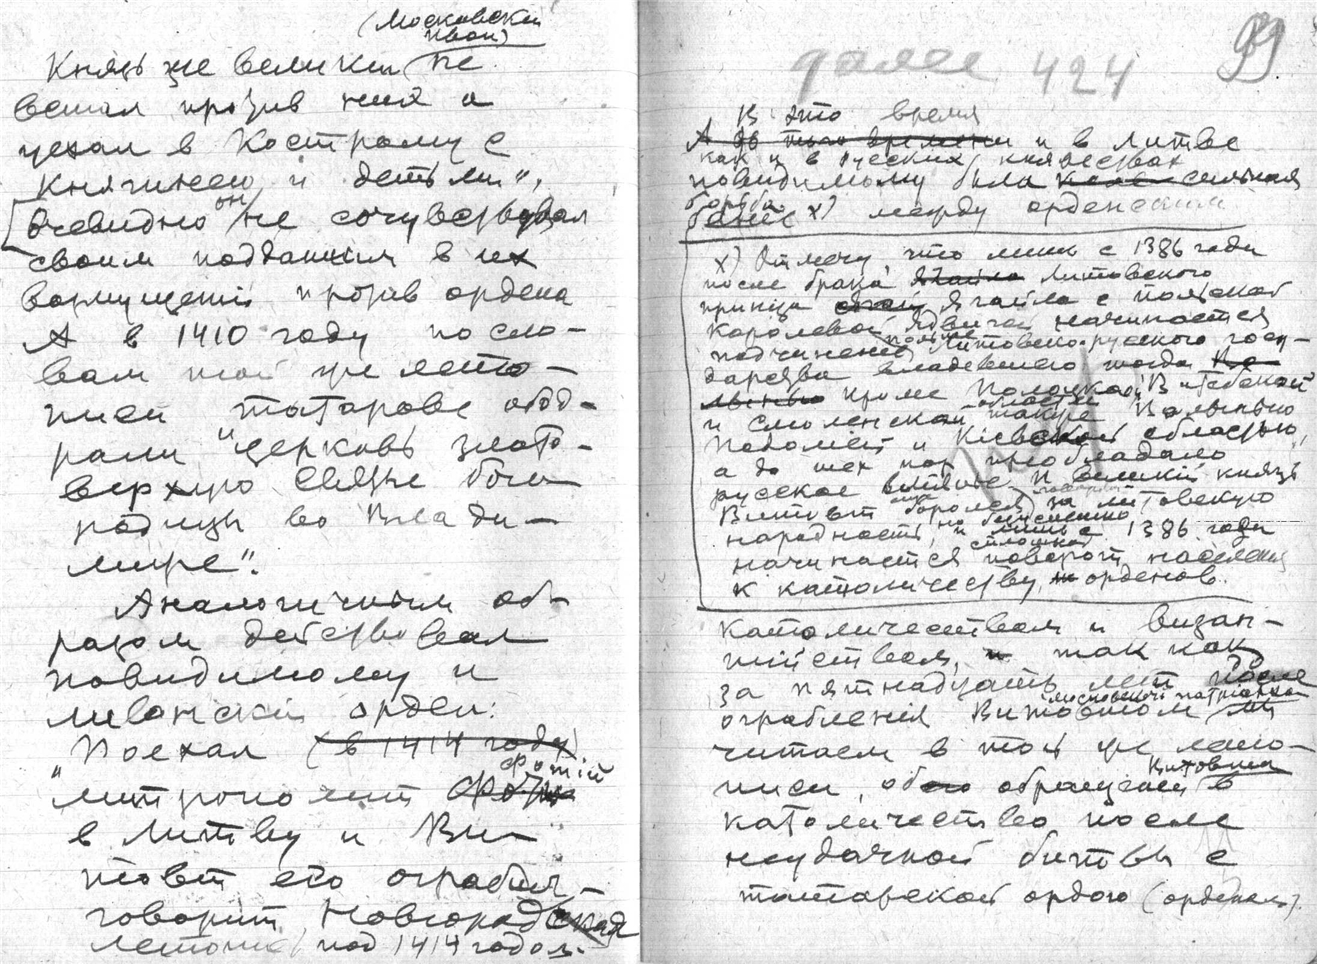 (Московский
Иван)
Князь же великий не
встал против них а
уехал в Кострому с
княгинею и детьми",
[Очевидно он не сочувствовал
своим подданным в их
возмущении против ордена
А в 1410 году по сло-
вам той же лето-
писи татарове обод-
рали "церковь злато-
верхую святые бого-
родицы во Влади-
мире".
Аналогичным об-
разом действовал
повидимому и
ливонский орден:
"Поехал (в 1414 году)
Фотий
митрополит
в Литву и Ви-
товт его ограбил"-
говорит Новгородская
летопись под 1414 годом.
99
далее 424
В это время
А до того времени и в Литве
как и в русских княжествах
повидимому была сильная
борьба
x) между орденским
x) Отмечу, что лишь с 1386 года
после брака Литовского
принца Ягайла с польской
королевой Ядвигой начинается
подчинение Литовско-русского госу-
дарства владевшего тогда
кроме Полоцкой, Витебской
и Смоленской также Волынью
Подолией и Киевской областью,
а до тех пор преобладало
русское влияние и великий князь
Витовт боролся за литовскую
народность, но
лишь с 1386 года
начинается поворот населения
к католичеству, орденов.
католичеством и визан-
тийством, и так как
за пятнадцать лет до
московского патриарха
ограбления Витовтом
читаем в той же лето-
Витовта
писи, об обращении в
католичество после
неудачной битвы с
татарской ордою (орденом).